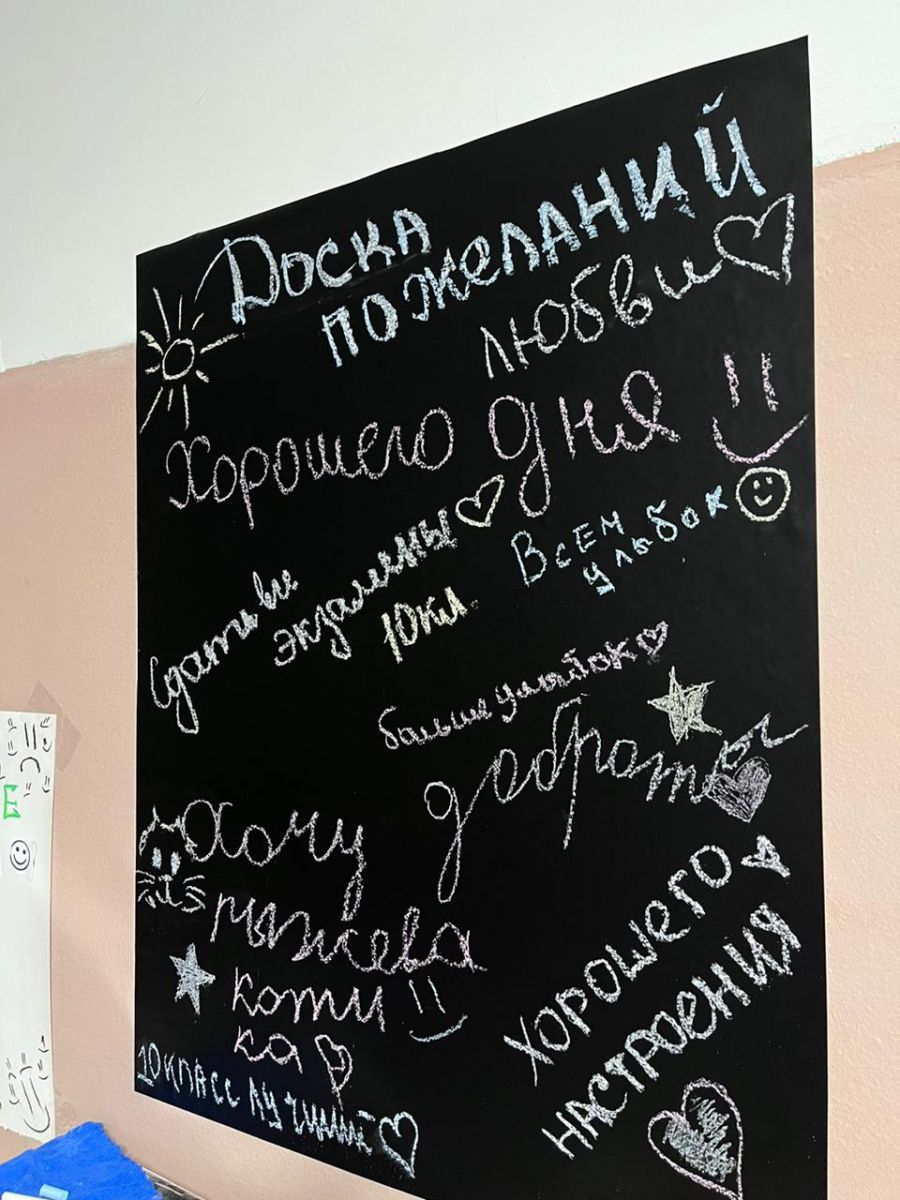 Доска
пожеланий
любви
Хорошего дня
Сдать все
экзамены
10 кл.
Всем
улыбок
больше улыбок
доброты
Хочу
рыжева
коти
ка
Хорошего
настроения
10 класс лучший